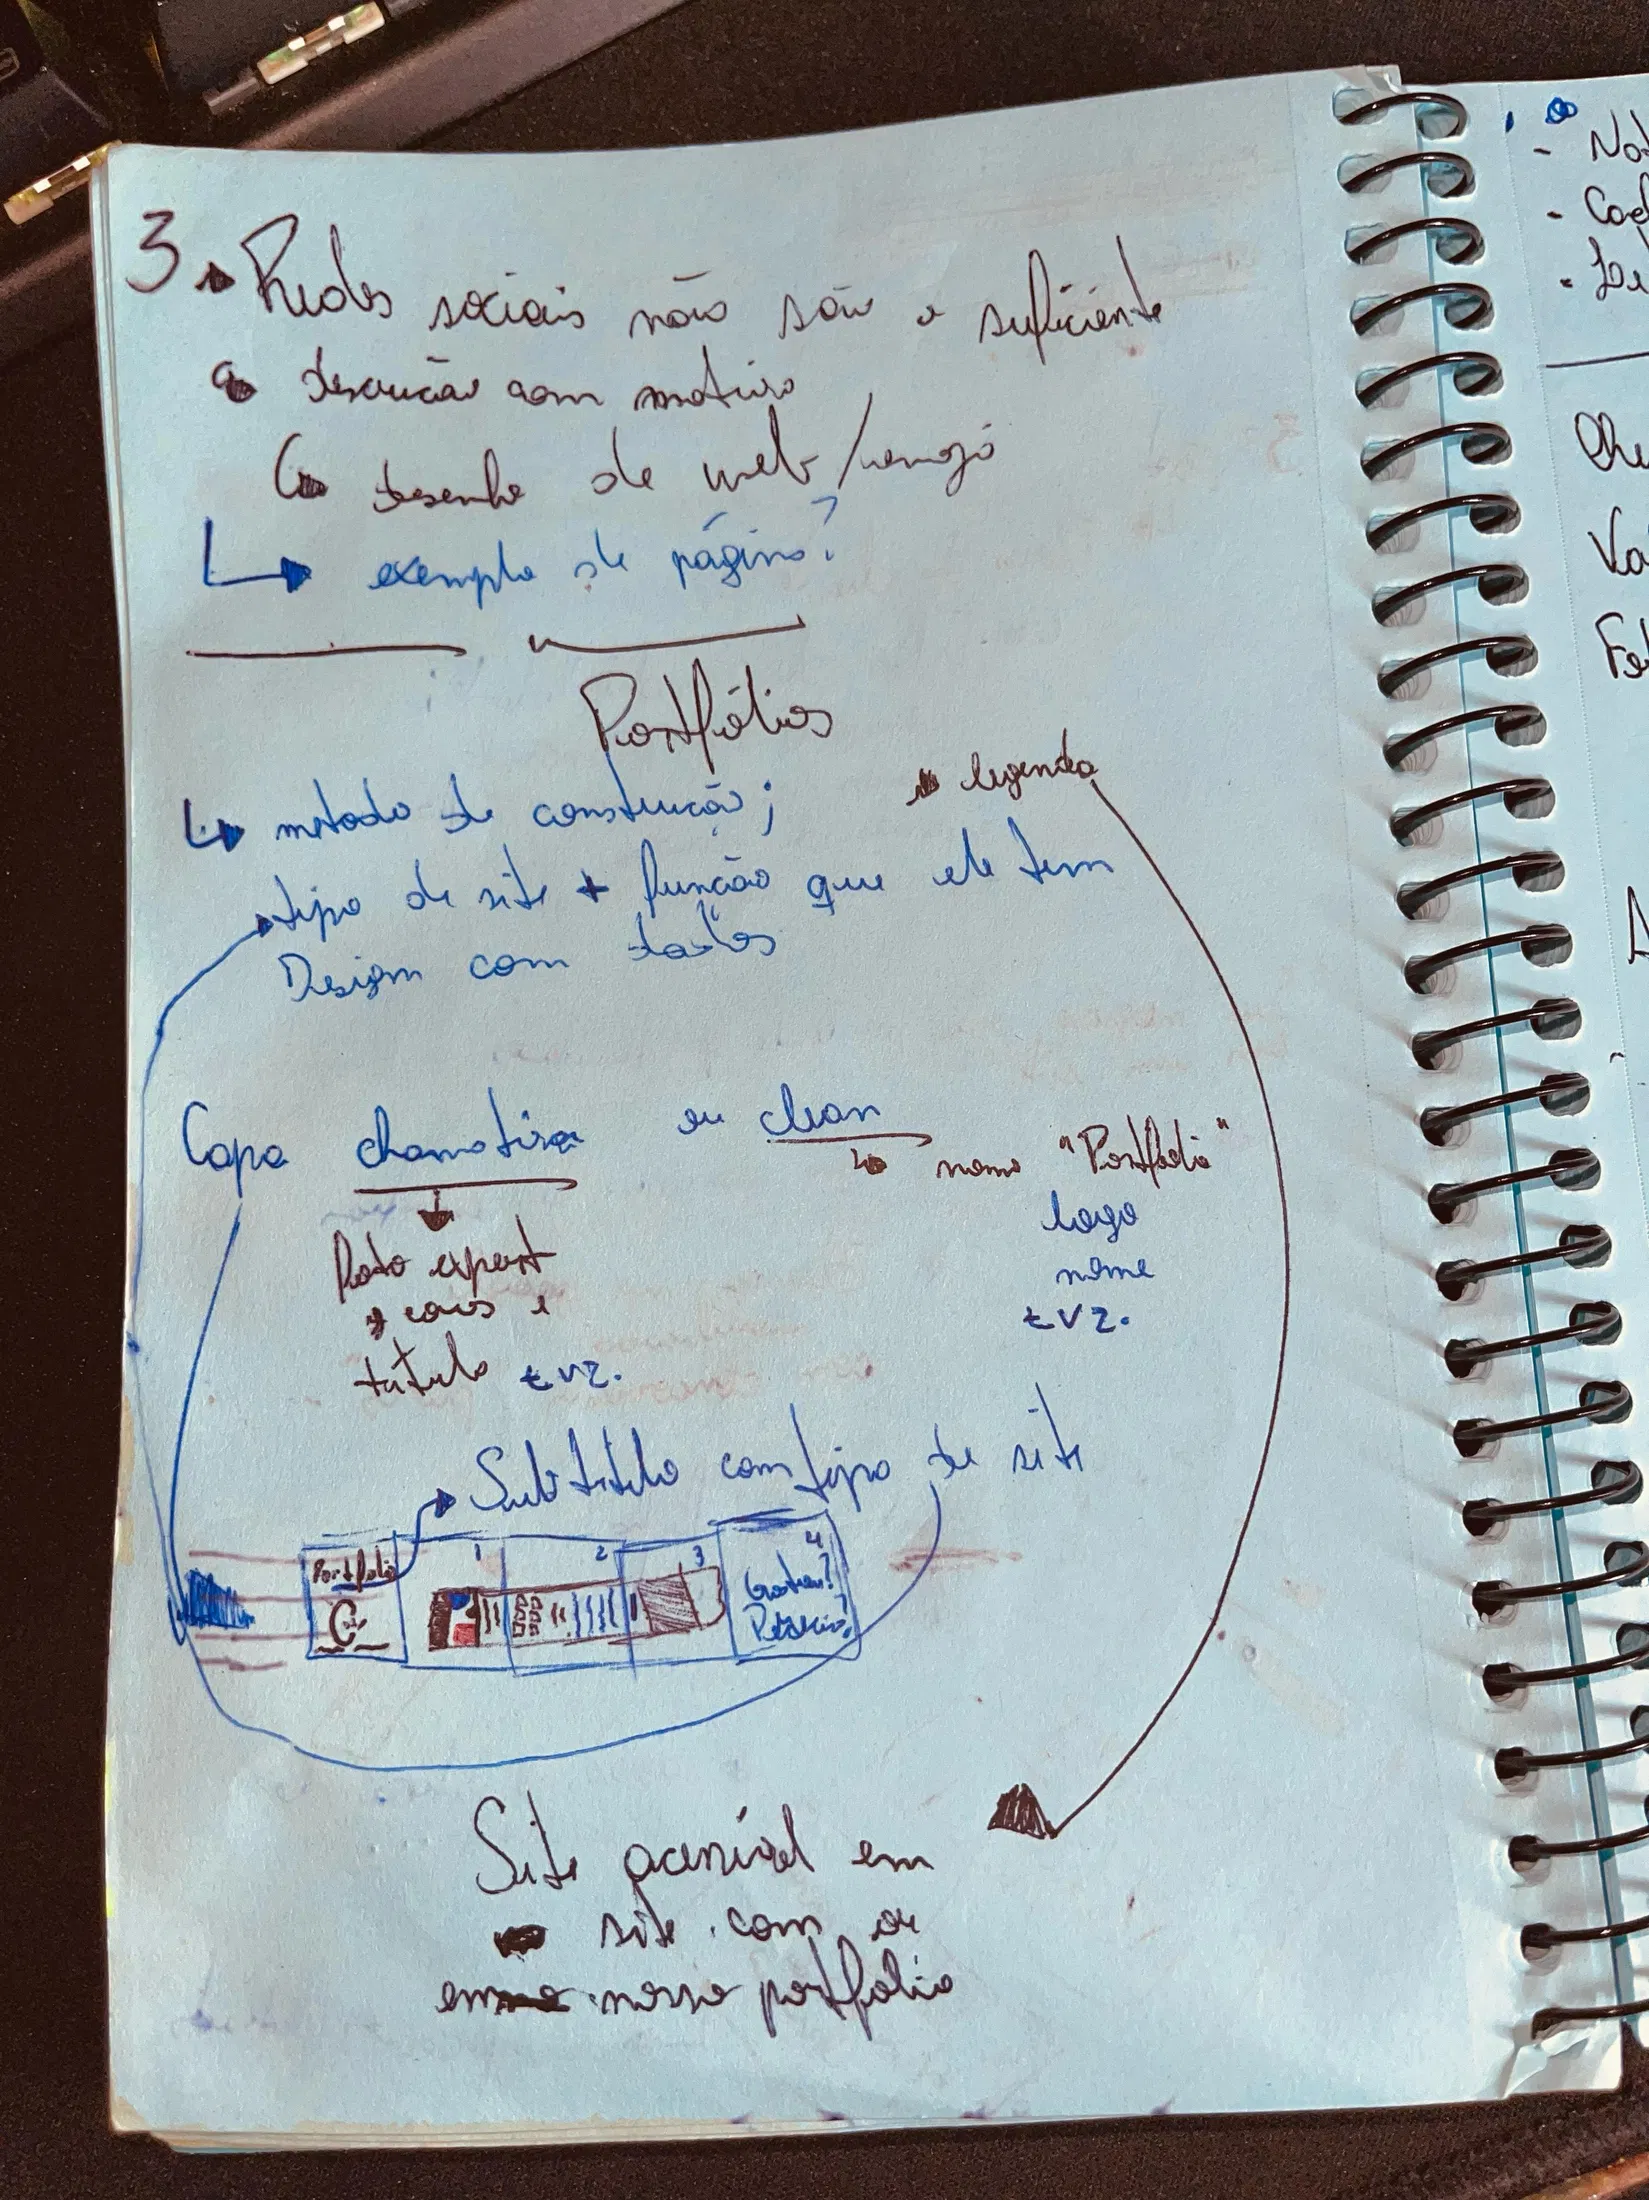 3 Redes sociais não são o suficiente
descrição com motivo
desenho de web/
exemplo de página?
Portfólios
legenda
metodo de construção;
tipo de site + função que ele tem
Design com
Capa chamativa ou clean
nome "Portfolio"
logo
nome
tvz.
Foto expert
e
título tvz.
Subtítulo com tipo de site
Portfolio
1
2
3
4
Gostou?
Site acessível em
site. com ou
em nosso portfolio
No
Cad
De
Che
Va
Fe
A